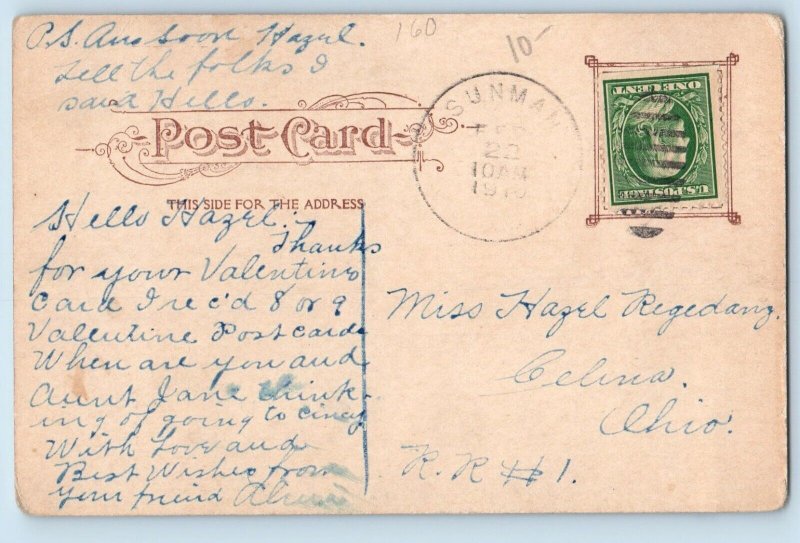 P.S. Ans Soon Hazel.
Tell the folks I
said Hello.
160
10-
SUNMAN
22
10AM
ONE CENT
U.S. POSTAGE
Post Card
THIS SIDE FOR THE ADDRESS
Hello Hazel:-
Thanks
for your Valentine
Card I rec'd 8 or 9
Valentine Postcards
When are you and
Aunt Jane think-
ing of going to Cincy
With Love and
Best Wishes from
your friend
Miss Hazel Regedanz.
Celina.
Ohio.
R.R #1.